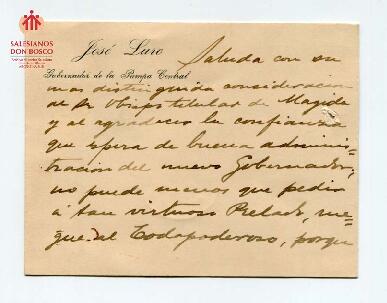 SALESIANOS
DON BOSCO
José Luro
Gobernador de la Pampa Central
Saluda con su
mas distinguida consideracion
al Sr Obispo titular de Magida
y al agradecer la confianza
que espera de buena adminis-
tracion del nuevo Gobernador,
no puede menos que pedir
á tan virtuoso Prelado, rue-
gue al Todopoderoso, porque